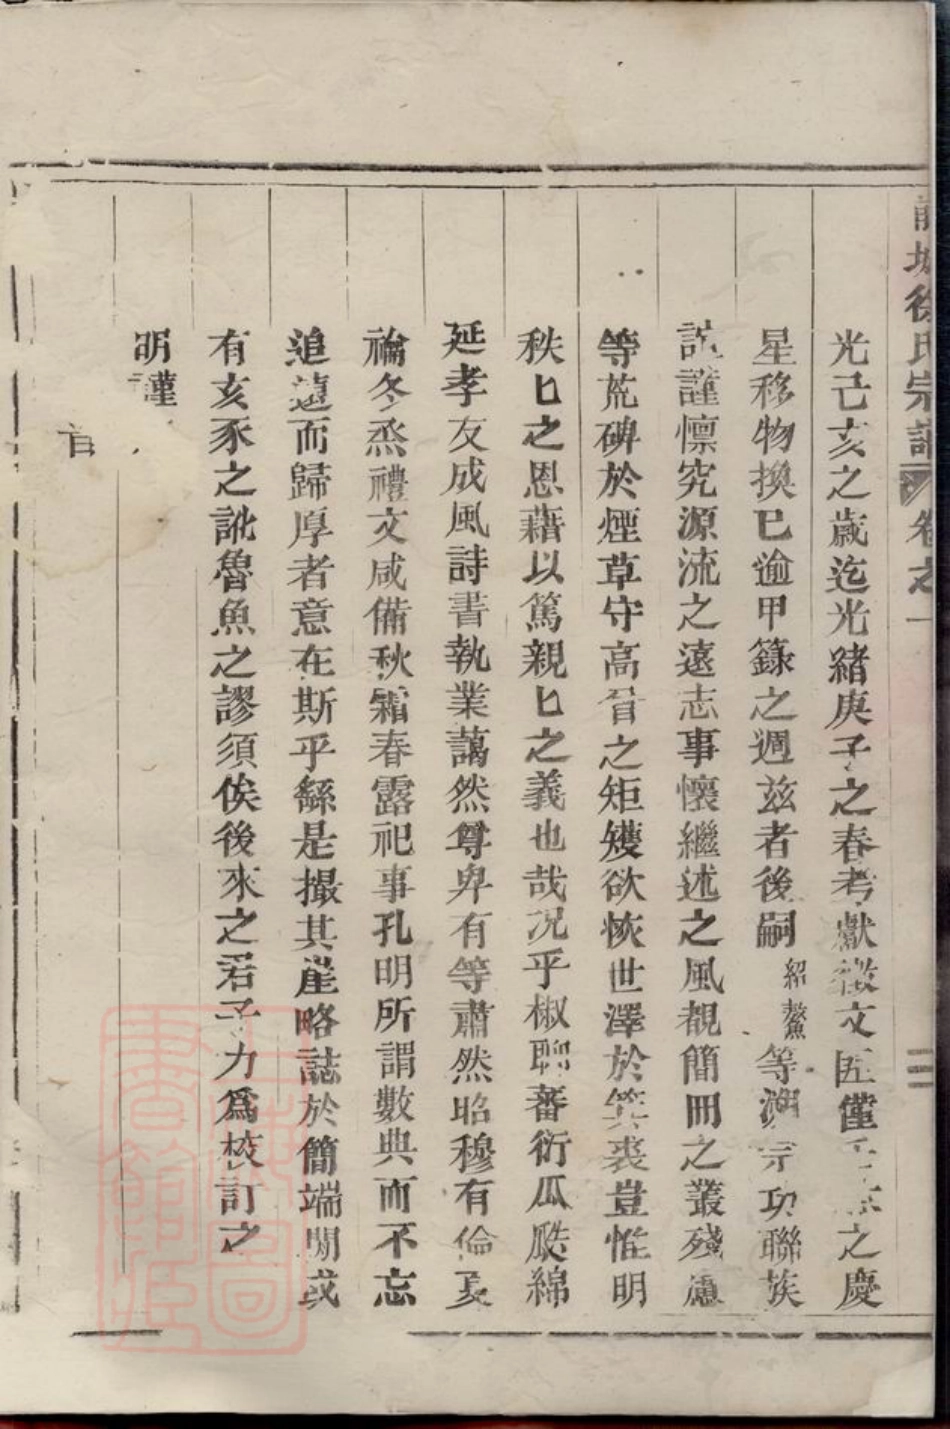 城徐氏宗譜 卷之一
光己亥之歲迄光緒庚子之春考獻徵文匪僅之慶
星移物換已逾甲籙之週玆者後嗣紹鰲等溯宗功聯族
誼謹懍究源流之遠志事懷繼述之風覩簡冊之叢殘慮
等荒碑於煙草守高曾之矩矱欲恢世澤於箕裘豈惟明
秩匕之恩藉以篤親匕之義也哉況乎椒聊蕃衍瓜瓞綿
延孝友成風詩書執業藹然尊卑有等肅然昭穆有倫夏
禴冬烝禮文咸備秋霜春露祀事孔明所謂數典而不忘
追遠而歸厚者意在斯乎繇是撮其崖略誌於簡端閒或
有亥豕之訛魯魚之謬須俟後來之君子力爲校訂之
明謹